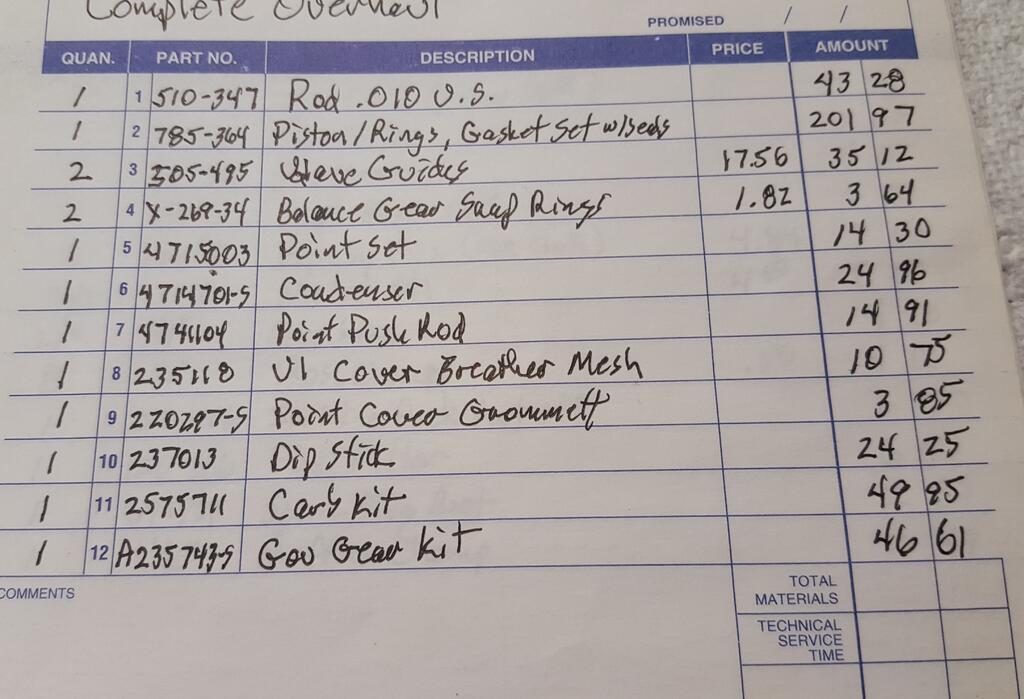 Complete Overhaul
PROMISED / /
QUAN. PART NO. DESCRIPTION PRICE AMOUNT
1 1 510-347 Rod .010 U.S. 43 28
1 2 785-364 Piston/Rings, Gasket Set w/seals 201 97
2 3 505-495 Guides 17.56 35 12
2 4 X-269-34 Balance Gear Snap Rings 1.82 3 64
1 5 4715003 Point Set 14 30
1 6 4714701-S Condenser 24 96
1 7 4741104 Point Push Rod 14 91
1 8 235118 Vl Cover Breather Mesh 10 75
1 9 220297-S Point Cover Grommett 3 85
1 10 237013 Dip Stick 24 25
1 11 2575711 Carb Kit 49 95
1 12 A235743-S Gov Gear Kit 46 61
COMMENTS
TOTAL
MATERIALS
TECHNICAL
SERVICE
TIME